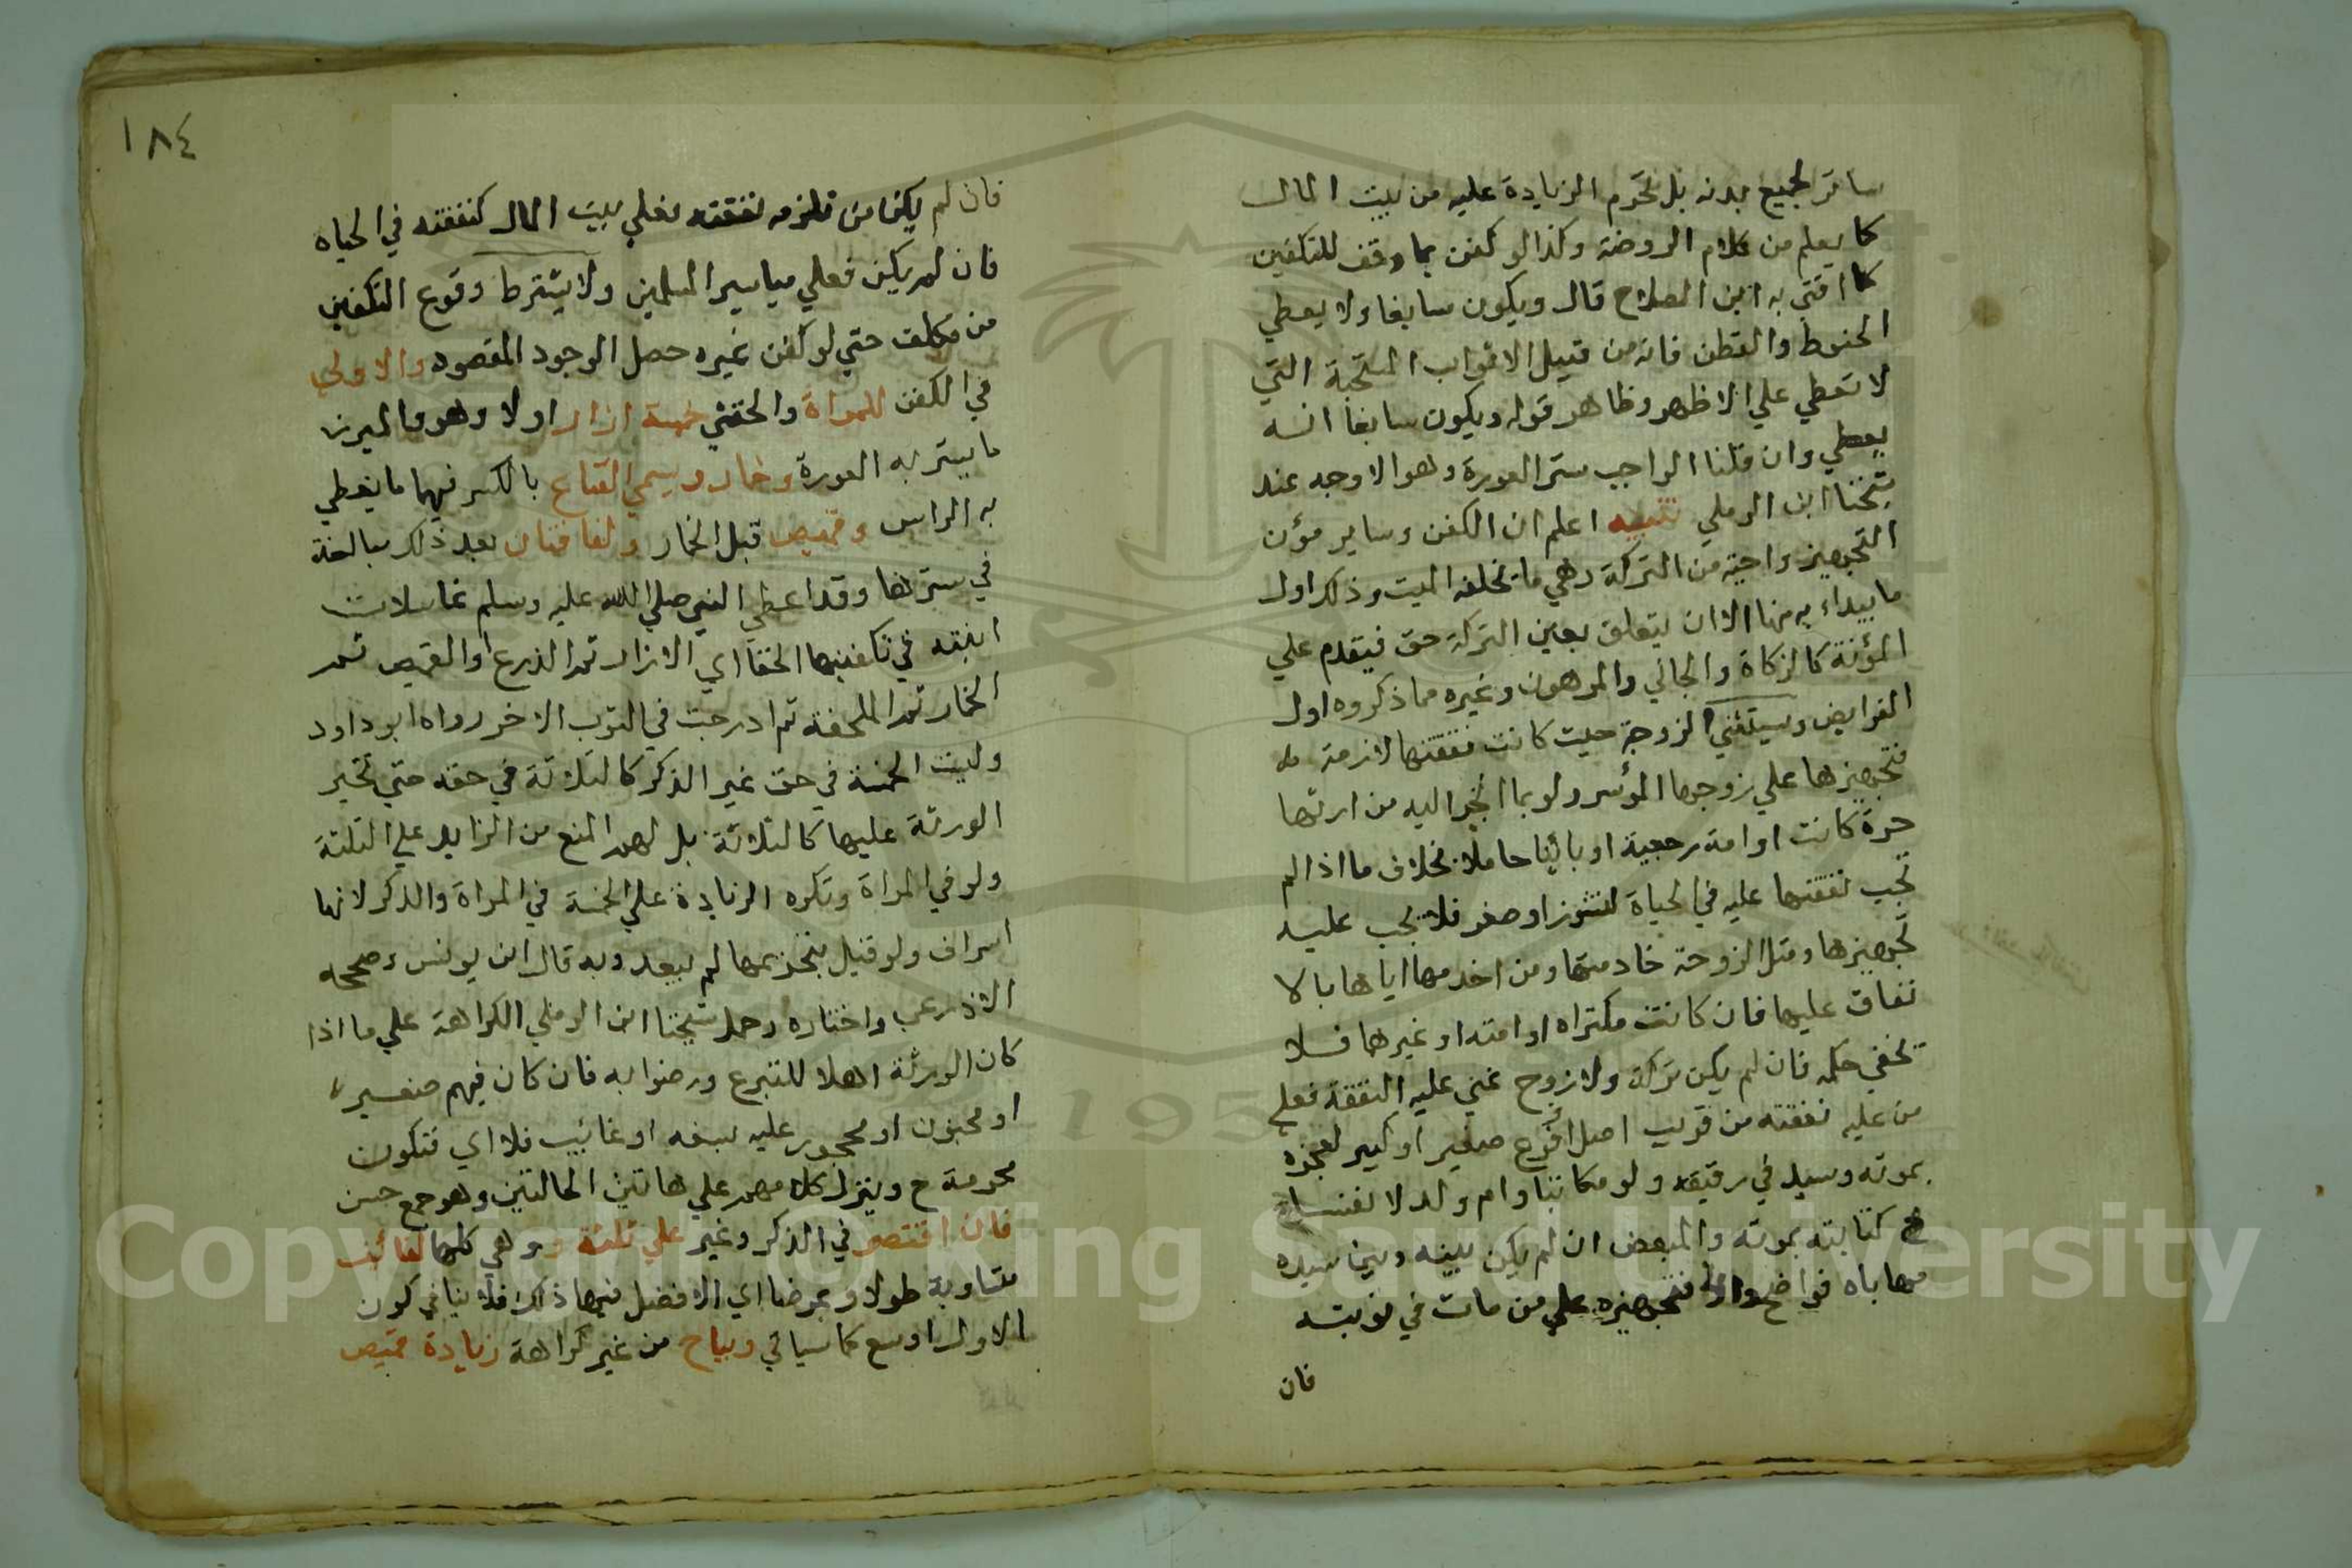 ساتر لجميع بدنه بل تحرم الزيادة عليه من بيت المال
كما يعلم من كلام الروضة وكذا لو كفن بما وقف للتكفين
كما افتي به ابن الصلاح قال ويكون سابغا ولا يعطي
الحنوط والقطن فانه من قبيل الاثواب المستحبة التي
لا تعطي علي الاظهر وظاهر قوله ويكون سابغا انه
يعطي وان قلنا الواجب ستر العورة وهو الاوجه عند
شيخنا ابن الرملي تنبيه اعلم ان الكفن وساير مؤن
التجهيز واجبة من التركة وهي ما تخلفه الميت وذلك اول
ما يبداء به منها الا ان يتعلق بعين التركة حق فيقدم علي
المؤنة كالزكاة والجاني والمرهون وغيره مما ذكروه اول
الفرايض ويستثني الزوجة حيث كانت نفقتها لازمة له
فتجهيزها علي زوجها المؤسر ولو بما انجر اليه من ارثها
حرة كانت او امة رجعية او بائنا حاملا بخلاف ما اذا لم
تجب نفقتها عليه في الحياة لنشوز او صغر فلا تجب عليه
تجهيزها ومثل الزوجة خادمتها ومن اخدمها اياها بالا
نفاق عليها فان كانت مكتراه او امته او غيرهما فلا
يخفي حكمه فان لم يكن تركة ولا زوج غني عليه النفقة فعلي
من عليه نفقته من قريب اصل او فرع صغير او كبير لعجزه
بموته وسيد في رقيقه ولو مكاتبا وام ولد لانفساخ
كتابته بموته والمبعض ان لم يكن بينه وبين سيده
مهاياه فواضح والا فتجهيزه علي من مات في نوبته
فان
١٨٤
فان لم يكن من تلزمه نفقته فعلي بيت المال كنفقته في الحياه
فان لم يكن فعلي مياسير المسلمين ولا يشترط وقوع التكفين
من مكلف حتي لو كفن غيره حصل الوجود المقصود والاولي
في الكفن للمراة والخنثي خمسة ازار اولا وهو والميزر
ما يستر به العورة وخمار ويسمي القناع بالكسر فيهما ما يغطي
به الراس وقميص قبل الخمار ولفافتان بعد ذلك مبالغة
في سترها وقد اعطي النبي صلي الله عليه وسلم غاسلات
ابنته في تكفينها الحقا اي الازار ثم الدرع او القميص ثم
الخمار ثم الملحفة ثم ادرجت في الثوب الاخر رواه ابو داود
وليت الخمسة في حق غير الذكر كالثلاثة في حقه حتي تخير
الورثة عليها كالثلاثة بل لهم المنع من الزايد علي الثلثة
ولو في المراة وتكره الزيادة علي الخمسة في المراة والذكر لانها
اسراف ولو قيل بتحريمها لم يبعد وبه قال ابن يونس وصححه
الاذرعي واختاره وحمل شيخنا ابن الرملي الكراهة علي ما اذا
كان الورثة اهلا للتبرع ورضوا به فان كان فيهم صغير
او مجنون او محجور عليه بسفه او غائب فلا اي فتكون
محرمة ح وينزل كلامهم علي هاتين الحالتين وهو جمع حسن
فان اقتصر في الذكر وغير علي ثلثة وهي كلها لفائف
متساوية طولا وعرضا اي الافضل فيها ذلك فلا ينافي كون
الاول اوسع كما سياتي ويباح من غير كراهة زيادة قميص